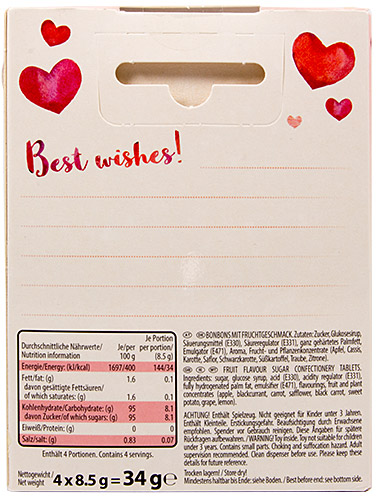 Best wishes!
Durchschnittliche Nährwerte/ Nutrition information Je/per 100 g Je Portion per portion/ (8.5 g)
Energie/Energy: (kJ/kcal) 1697/400 144/34
Fett/fat: (g) 1.6 0.1
davon gesättigte Fettsäuren/
of which saturates: (g) 1.6 0.1
Kohlenhydrate/Carbohydrate: (g) 95 8.1
davon Zucker/of which sugars: (g) 95 8.1
Eiweiß/Protein: (g) 0 0
Salz/salt: (g) 0.83 0.07
Enthält 4 Portionen. Contains 4 servings.
Nettogewicht/
Net weight: 4 x 8.5g = 34g e
BONBONS MIT FRUCHTGESCHMACK. Zutaten: Zucker, Glukosesirup,
Säuerungsmittel (E330), Säureregulator (E331), ganz gehärtetes Palmfett,
Emulgator (E471), Aroma, Frucht- und Pflanzenkonzentrate (Apfel, Cassis,
Karotte, Saflor, Schwarzkarotte, Süßkartoffel, Traube, Zitrone).
FRUIT FLAVOUR SUGAR CONFECTIONERY TABLETS.
Ingredients: sugar, glucose syrup, acid (E330), acidity regulator (E331),
fully hydrogenated palm fat, emulsifier (E471), flavourings, fruit and plant
concentrates (apple, blackcurrant, carrot, safflower, black carrot, sweet
potato, grape, lemon).
ACHTUNG! Enthält Spielzeug. Nicht geeignet für Kinder unter 3 Jahren.
Enthält Kleinteile. Erstickungsgefahr. Beaufsichtigung durch Erwachsene
empfohlen. Spender vor Gebrauch reinigen. Diese Angaben für spätere
Rückfragen aufbewahren. / WARNING! Toy inside. Toy not suitable for children
under 3 years. Contains small parts. Choking and suffocation hazard. Adult
supervision recommended. Clean dispenser before use. Please keep these
details for future reference.
Trocken lagern! / Store dry!
Mindestens haltbar bis Ende: siehe Boden. / Best before end: see bottom side.